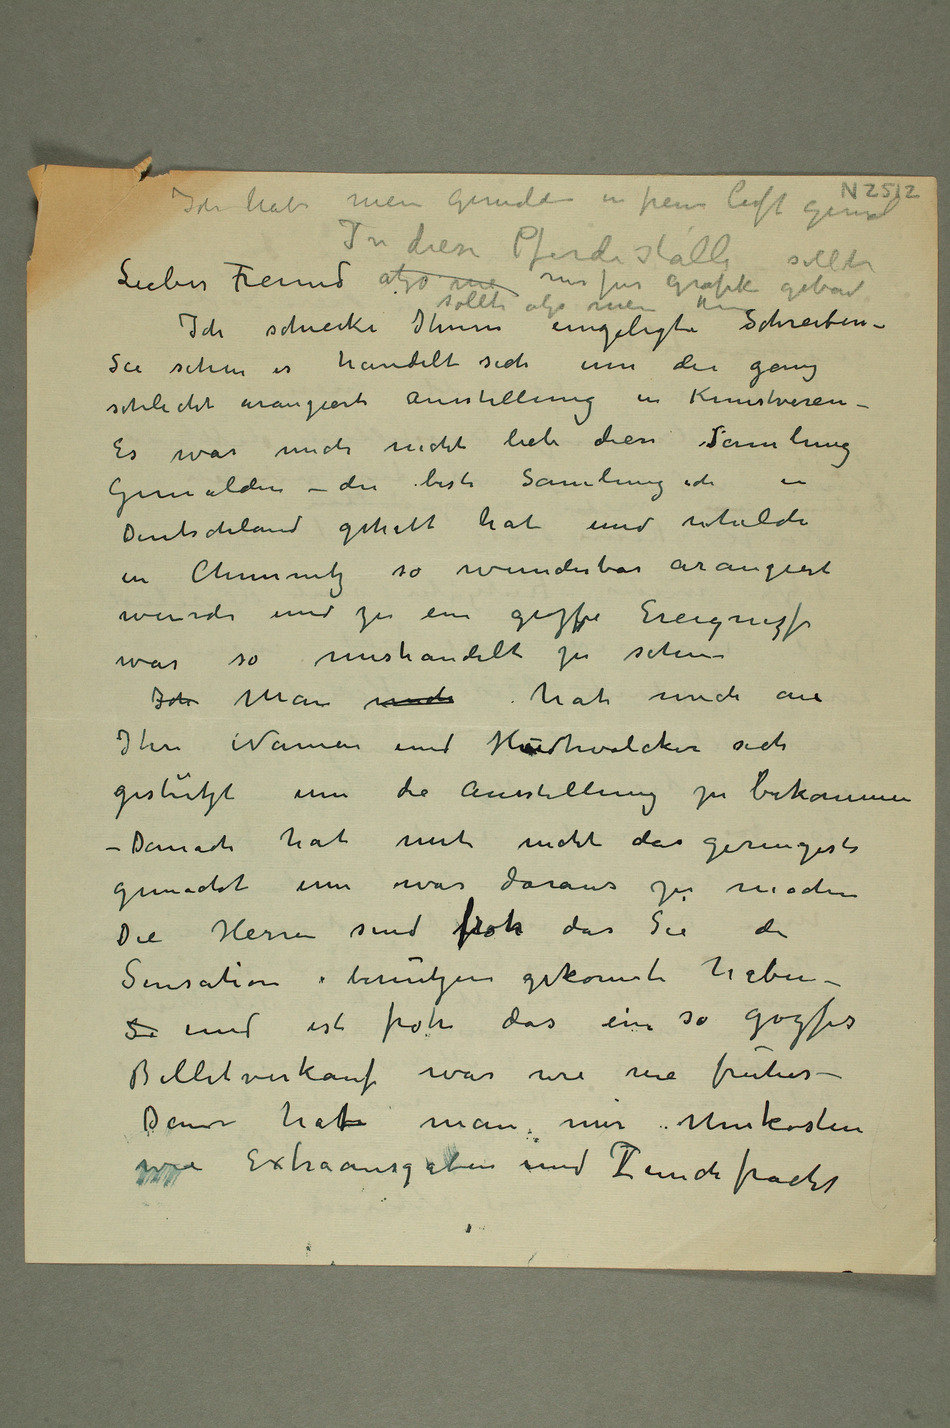 N 2512
Ich habe mein Gemälde in freien Luft gemal
In diese Pferdeställe sollte
Lieber Freund also me nur für Grafik gebau
sollte also mein
Ich schicke Ihnen eingelegte Schreiben –
Sie sehen es handelt sich um die ganz
schlecht arangierte Ausstellung in Kunstverein –
Es war mich nicht lieb diese Samlung
Gemälden – die beste Samlung ich in
Deutschland gehatt hat und welche
in Chemnitz so wunderbar arangiert
wurde und zu ein große Ereigniss
war so mishandelt zu sehen
Ich Man mich hat mich an
Ihre Namen und Hudtwalcker sich
gestützt um die Ausstellung zu bekommen
– Danach hat mit nicht das geringste
gemacht um was daraus zu machen
Die Herren sind froh das Sie die
Sensation benützen gekonnte haben –
Si und ist froh das ein so grosses
Billetverkauf war wie nie früher –
Dann hat man mir Unkosten
wie Extraausgaben und Rundfracht